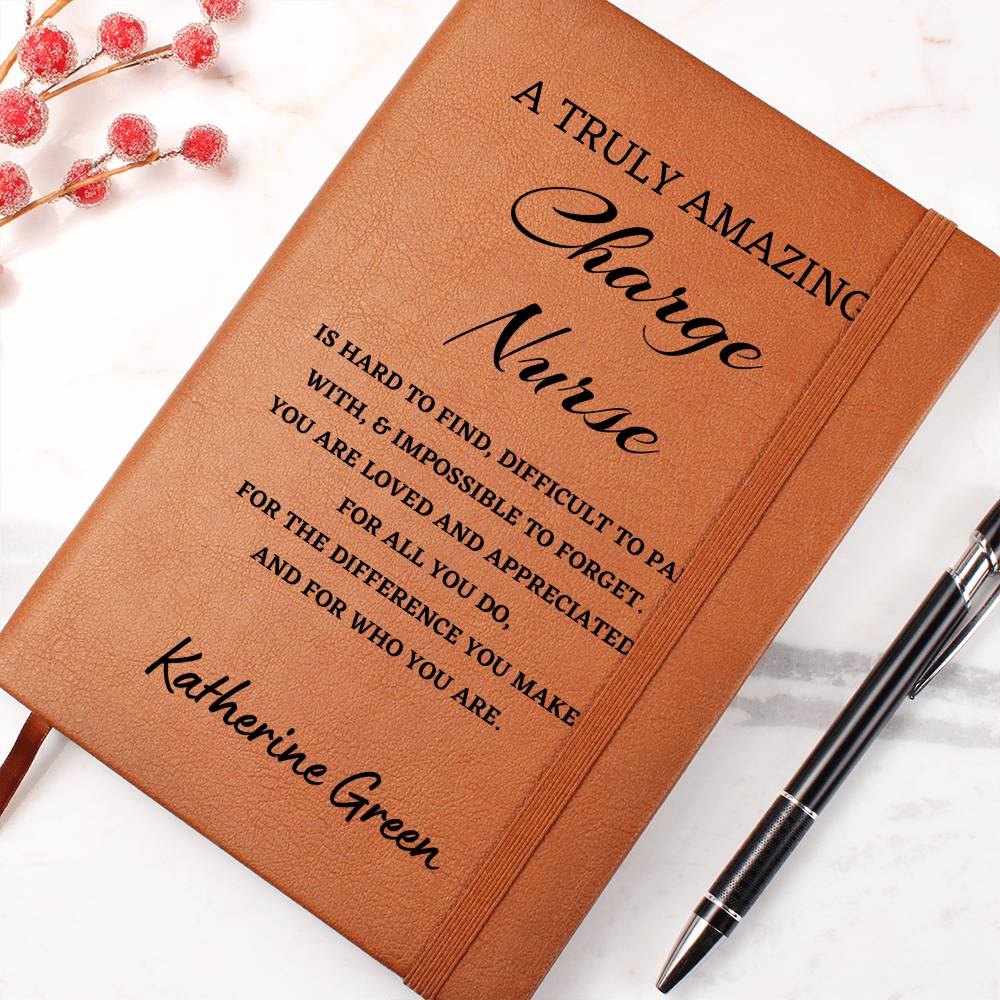 A TRULY AMAZING
Charge
Nurse
IS HARD TO FIND, DIFFICULT TO
WITH, & IMPOSSIBLE TO FORGET.
YOU ARE LOVED AND APPRECIATED
FOR ALL YOU DO,
FOR THE DIFFERENCE YOU MAKE
AND FOR WHO YOU ARE.
Katherine Green